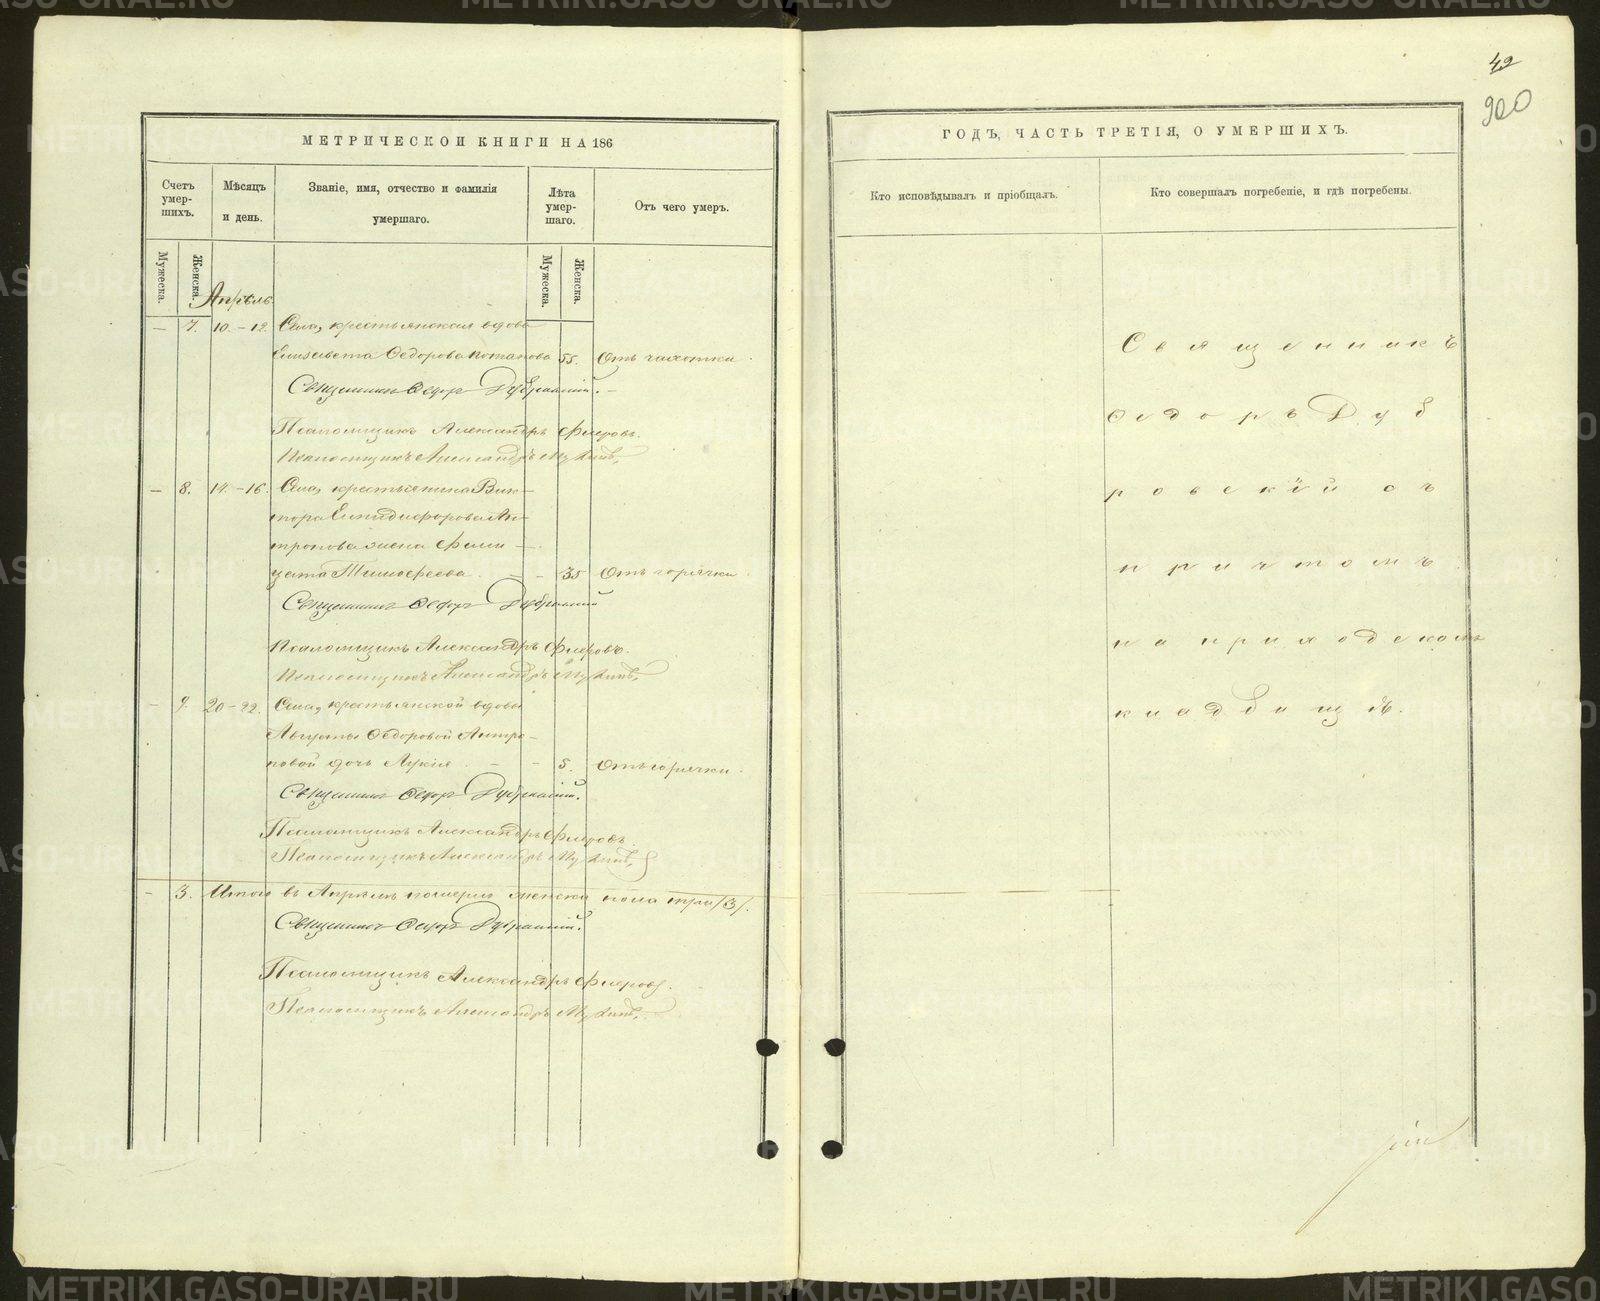 42
900
МЕТРИЧЕСКОЙ КНИГИ НА 186
Счетъ умер-шихъ.
Мѣсяцъ и день.
Званіе, имя, отчество и фамилія умершаго.
Лѣта умер-шаго.
Отъ чего умеръ.
Мужеска.
Женска.
Мужеска.
Женска.
Апрѣль
— 7. 10.–12. Села, крестьянская вдова
Елисавета Ѳедорова Потапова 55. Отъ чахотки.
Священникъ Ѳедоръ Дубровскій.
Псаломщикъ Александръ Флеровъ.
Псаломщикъ Александръ
— 8. 14.–16. Села, крестьянина Вик-
тора Елпидифорова Ан-
тропова жена Фели-
цата Тимофеева. – – 35 Отъ горячки.
Священникъ Ѳедоръ Дубровскій
Псаломщикъ Александръ Флеровъ.
Псаломщикъ Александръ
– 9. 20–22. Села, крестьянской вдовы
Августы Ѳедоровой Антро-
повой дочь Лукія. – – 5. Отъ горячки.
Священникъ Ѳедоръ Дубровскій.
Псаломщикъ Александръ Флеровъ.
Псаломщикъ Александръ
– 3. Итого въ Апрѣлѣ померло женска пола три /3/.
Священникъ Ѳедоръ Дубровскій.
Псаломщикъ Александръ Флеровъ.
Псаломщикъ Александръ
ГОДЪ, ЧАСТЬ ТРЕТІЯ, О УМЕРШИХЪ.
Кто исповѣдывалъ и пріобщалъ.
Кто совершалъ погребеніе, и гдѣ погребены.
Священникъ
Ѳедоръ Дуб
ровскій съ
причтомъ
на приходскомъ
кладбищѣ.
METRIKI.GASO-URAL.RU